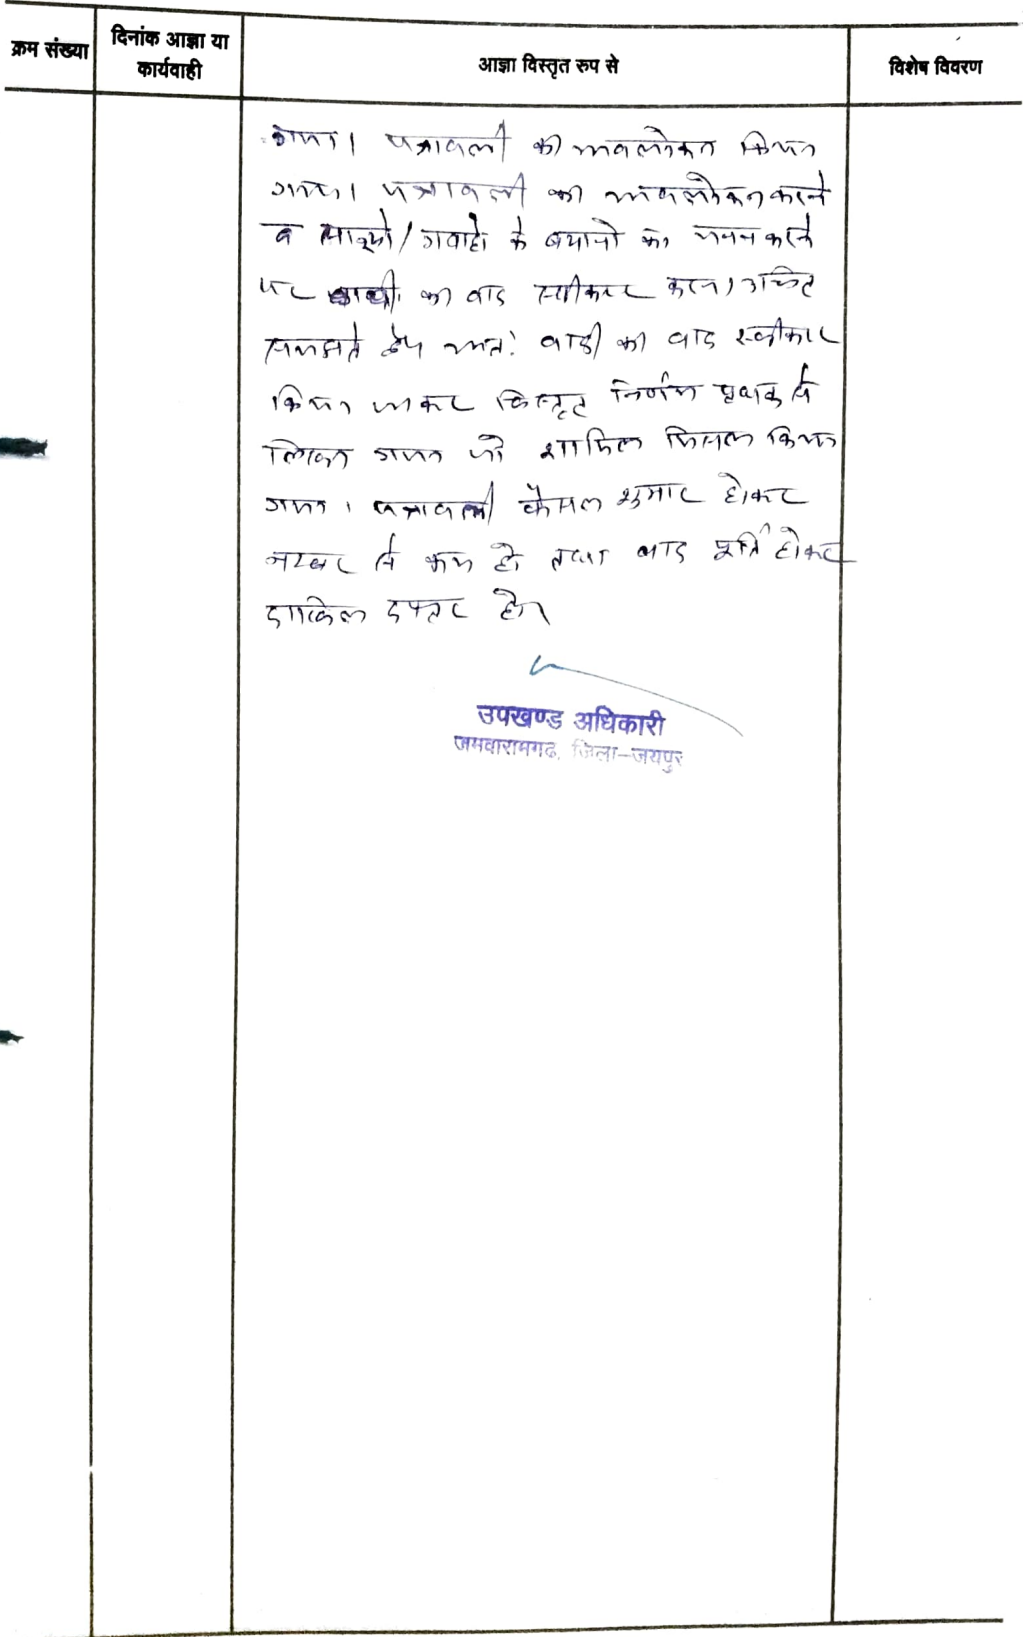 क्रम संख्या
दिनांक आज्ञा या
कार्यवाही
आज्ञा विस्तृत रुप से
विशेष विवरण
गया। पत्रावली का अवलोकन किया
गया। पत्रावली का अवलोकन करने
व साक्ष्यो/गवाहो के बयानो का मनन करने
पर का वाद स्वीकार करना उचित
समझते है। अत: वादी का वाद स्वीकार
किया जाकर विस्तृत निर्णय पृथक से
लिखा गया जो शामिल मिसल किया
गया। पत्रावली फैसल शुमार होकर
नम्बर से कम हो तथा बाद पूर्ति होकर
दाखिल दफ्तर हो।
उपखण्ड अधिकारी
जमवारामगढ, जिला-जयपुर